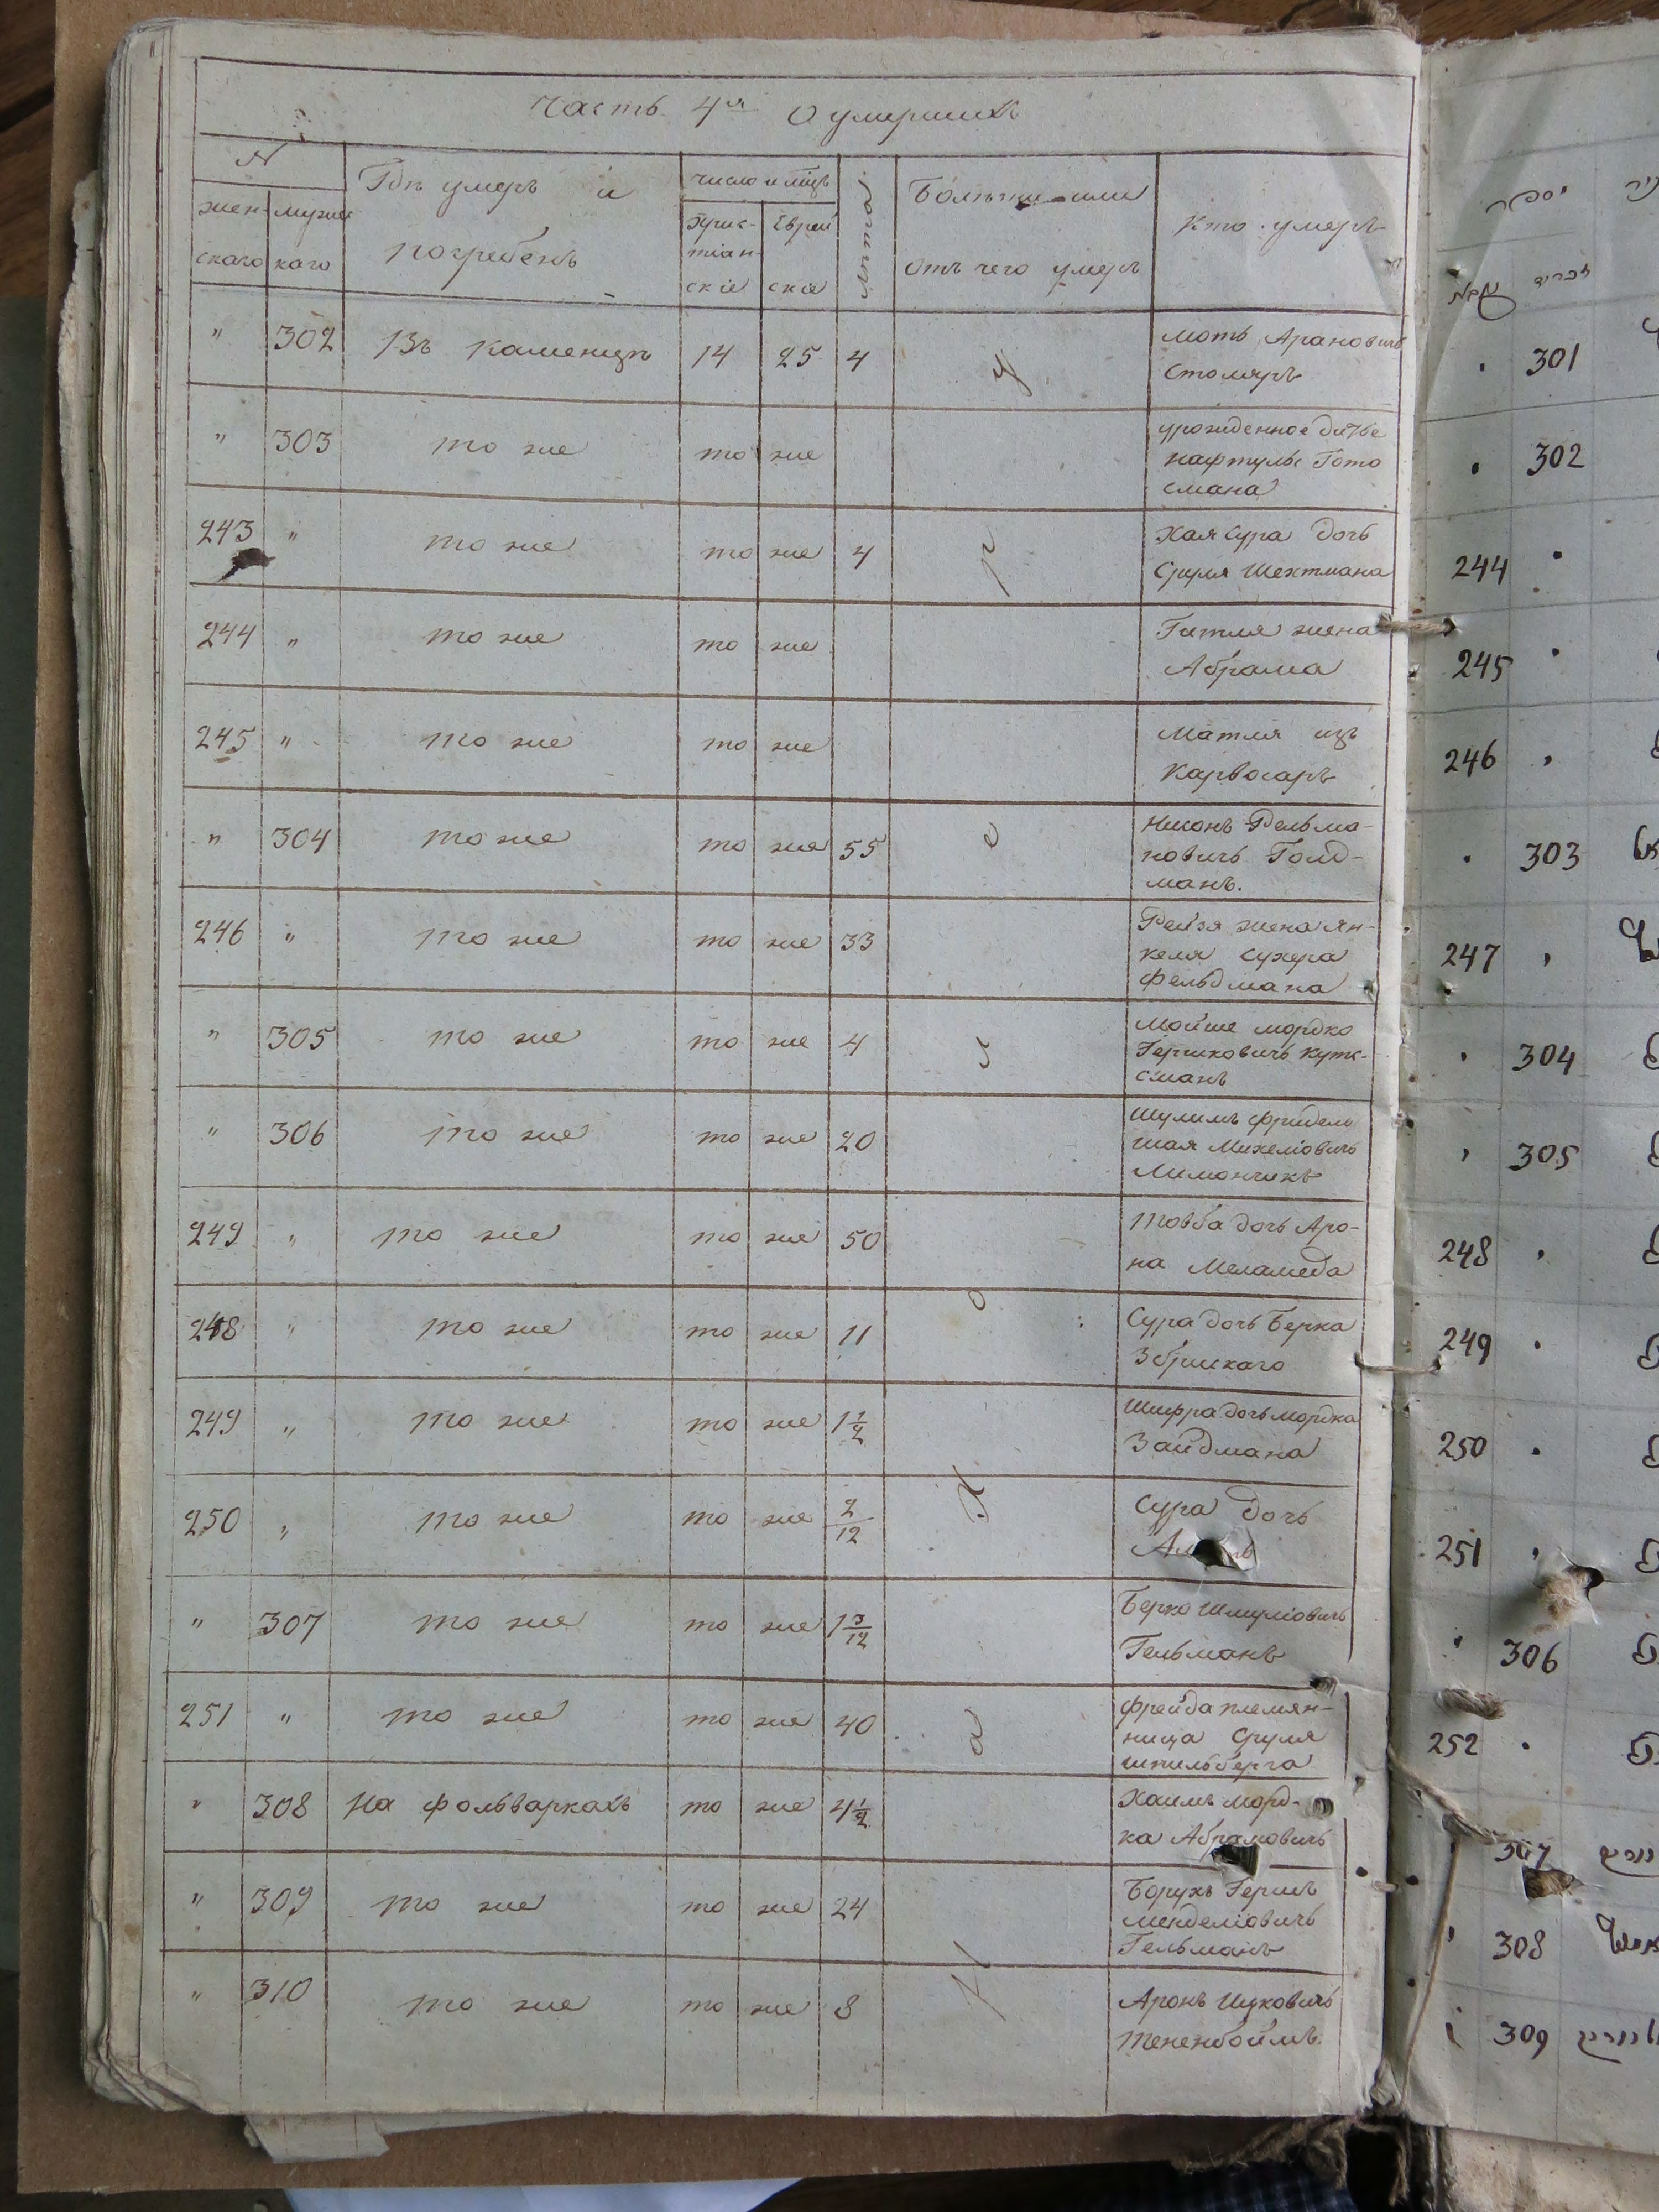 Часть 4я О умершихъ
№
Гдѣ умеръ и погребенъ
число и мѣцъ
лѣта
Болѣзнь или отъ чего умеръ
Кто умеръ
женскаго
мужескаго
Христіанскіе
Еврейскіе
" 302 Въ Каменцѣ 14 25 4 Мотъ Арановичъ
Столяръ
" 303 то же то же урожденное дитѣе
Нафтулы Гото
смана
243 " то же то же 4 Хая Сура дочь
Сруля Шехтмана
244 " то же то же Гитля жена
Абрама
245 " то же то же Матля изъ
Карвосаръ
" 304 то же то же 55 Голд-
манъ.
246 " то же то же 33 Рейзя жена Ян-
келя Сухера
Фельдмана
" 305 то же то же 4 Мойше Мордко
Гершковичъ
сманъ
" 306 то же то же 20 Шулимъ Фридель
Шая Михеліовичъ
Лимончикъ
249 " то же то же 50 Товба дочь Аро-
на Меламеда
248 " то же то же 11 Сура дочь Берка
Збришкаго
249 " то же то же 1 1/2 Шифра дочь Мордка
Зайдмана
250 " то же то же 2/12 Сура дочь
" 307 то же то же 1 3/12 Берко Шмуліовичъ
Гельманъ
251 " то же то же 40 Фрейда племян-
ница Сруля
Шпильберга
" 308 На фольваркахъ то же 4 1/2 Хаимъ Морд-
ка Абрамовичъ
" 309 то же то же 24 Борухъ Гершъ
Менделіовичъ
Гельманъ
" 310 то же то же 8 Аронъ Ицковичъ
Тененбоймъ.
301
302
244
245
246
303
247
304
305
248
249
250
251
306
252
307
308
309